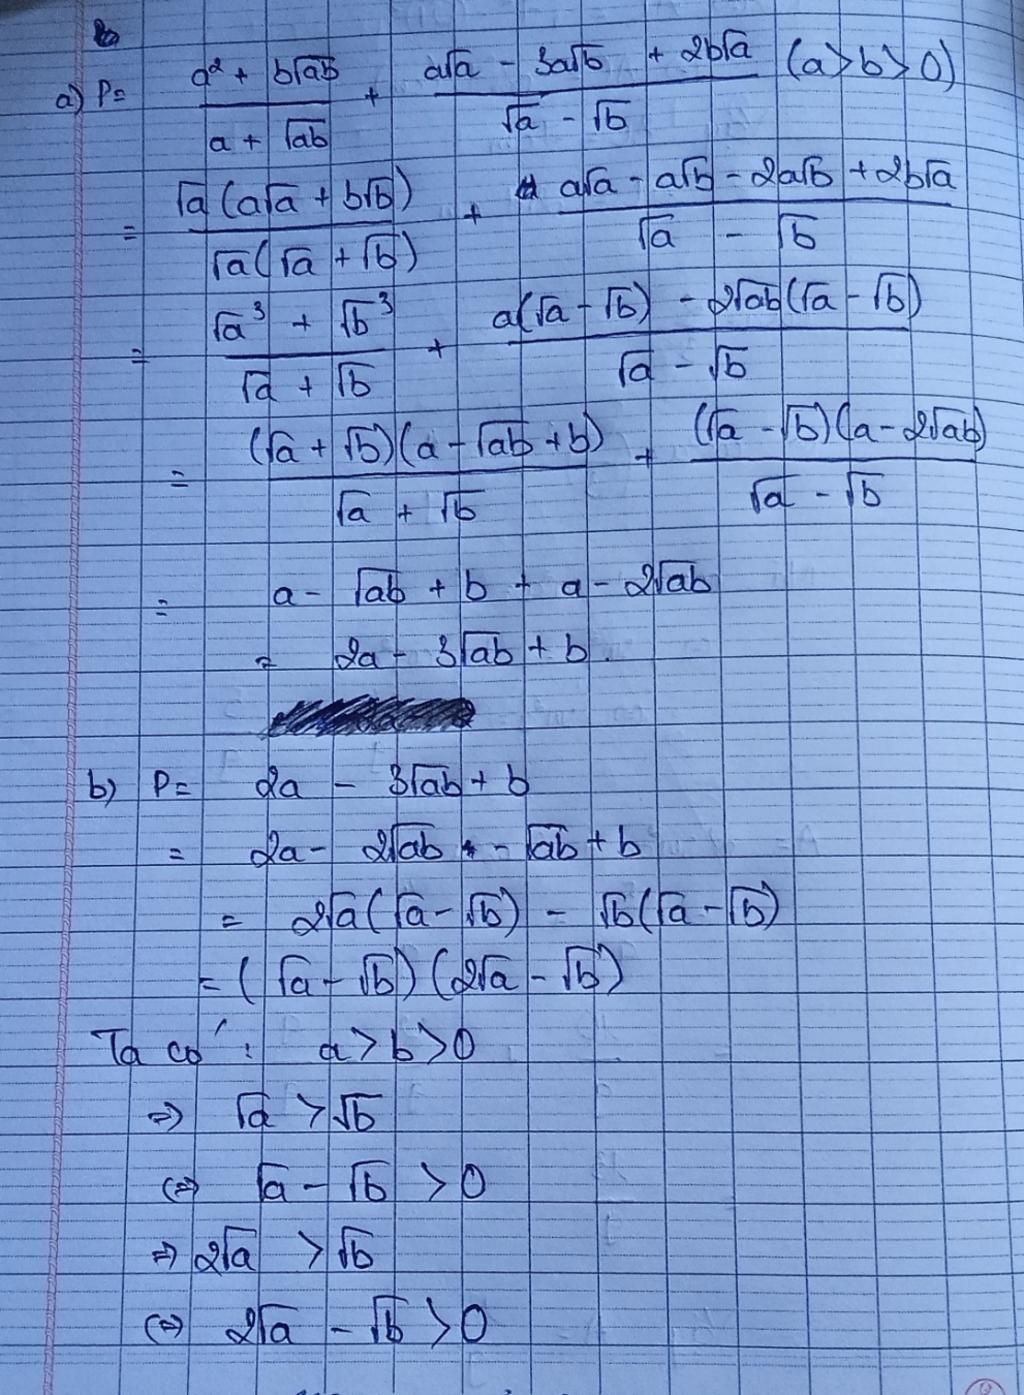 a) P = \frac{a² + b√ab}{a + √ab} + \frac{a√a - 3a√b + 2b√a}{√a - √b} (a > b > 0)
= \frac{√a (a√a + b√b)}{√a (√a + √b)} + \frac{a√a - a√b - 2a√b + 2b√a}{√a - √b}
= \frac{√a³ + √b³}{√a + √b} + \frac{a(√a - √b) - 2√ab(√a - √b)}{√a - √b}
= \frac{(√a + √b)(a - √ab + b)}{√a + √b} + \frac{(√a - √b)(a - 2√ab)}{√a - √b}
= a - √ab + b + a - 2√ab
= 2a - 3√ab + b.
b) P = 2a - 3√ab + b
= 2a - 2√ab - √ab + b
= 2√a(√a - √b) - √b(√a - √b)
= (√a - √b)(2√a - √b)
Ta có : a > b > 0
⇒ √a > √b
⇔ √a - √b > 0
⇒ 2√a > √b
⇔ 2√a - √b > 0